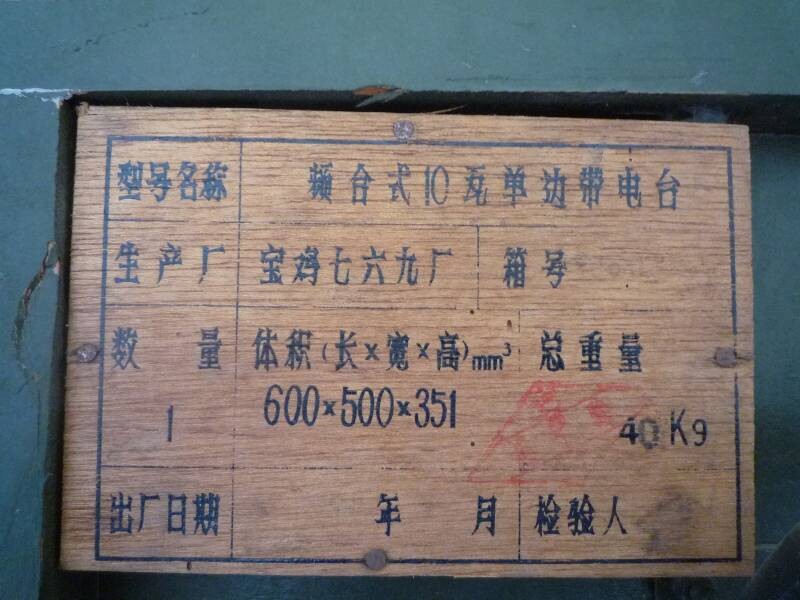 型号名称 频合式10瓦单边带电台
生产厂 宝鸡七六九厂 箱号
数量 体积(长×宽×高)mm³ 总重量
1 600×500×351 40Kg
出厂日期 年 月 检验人